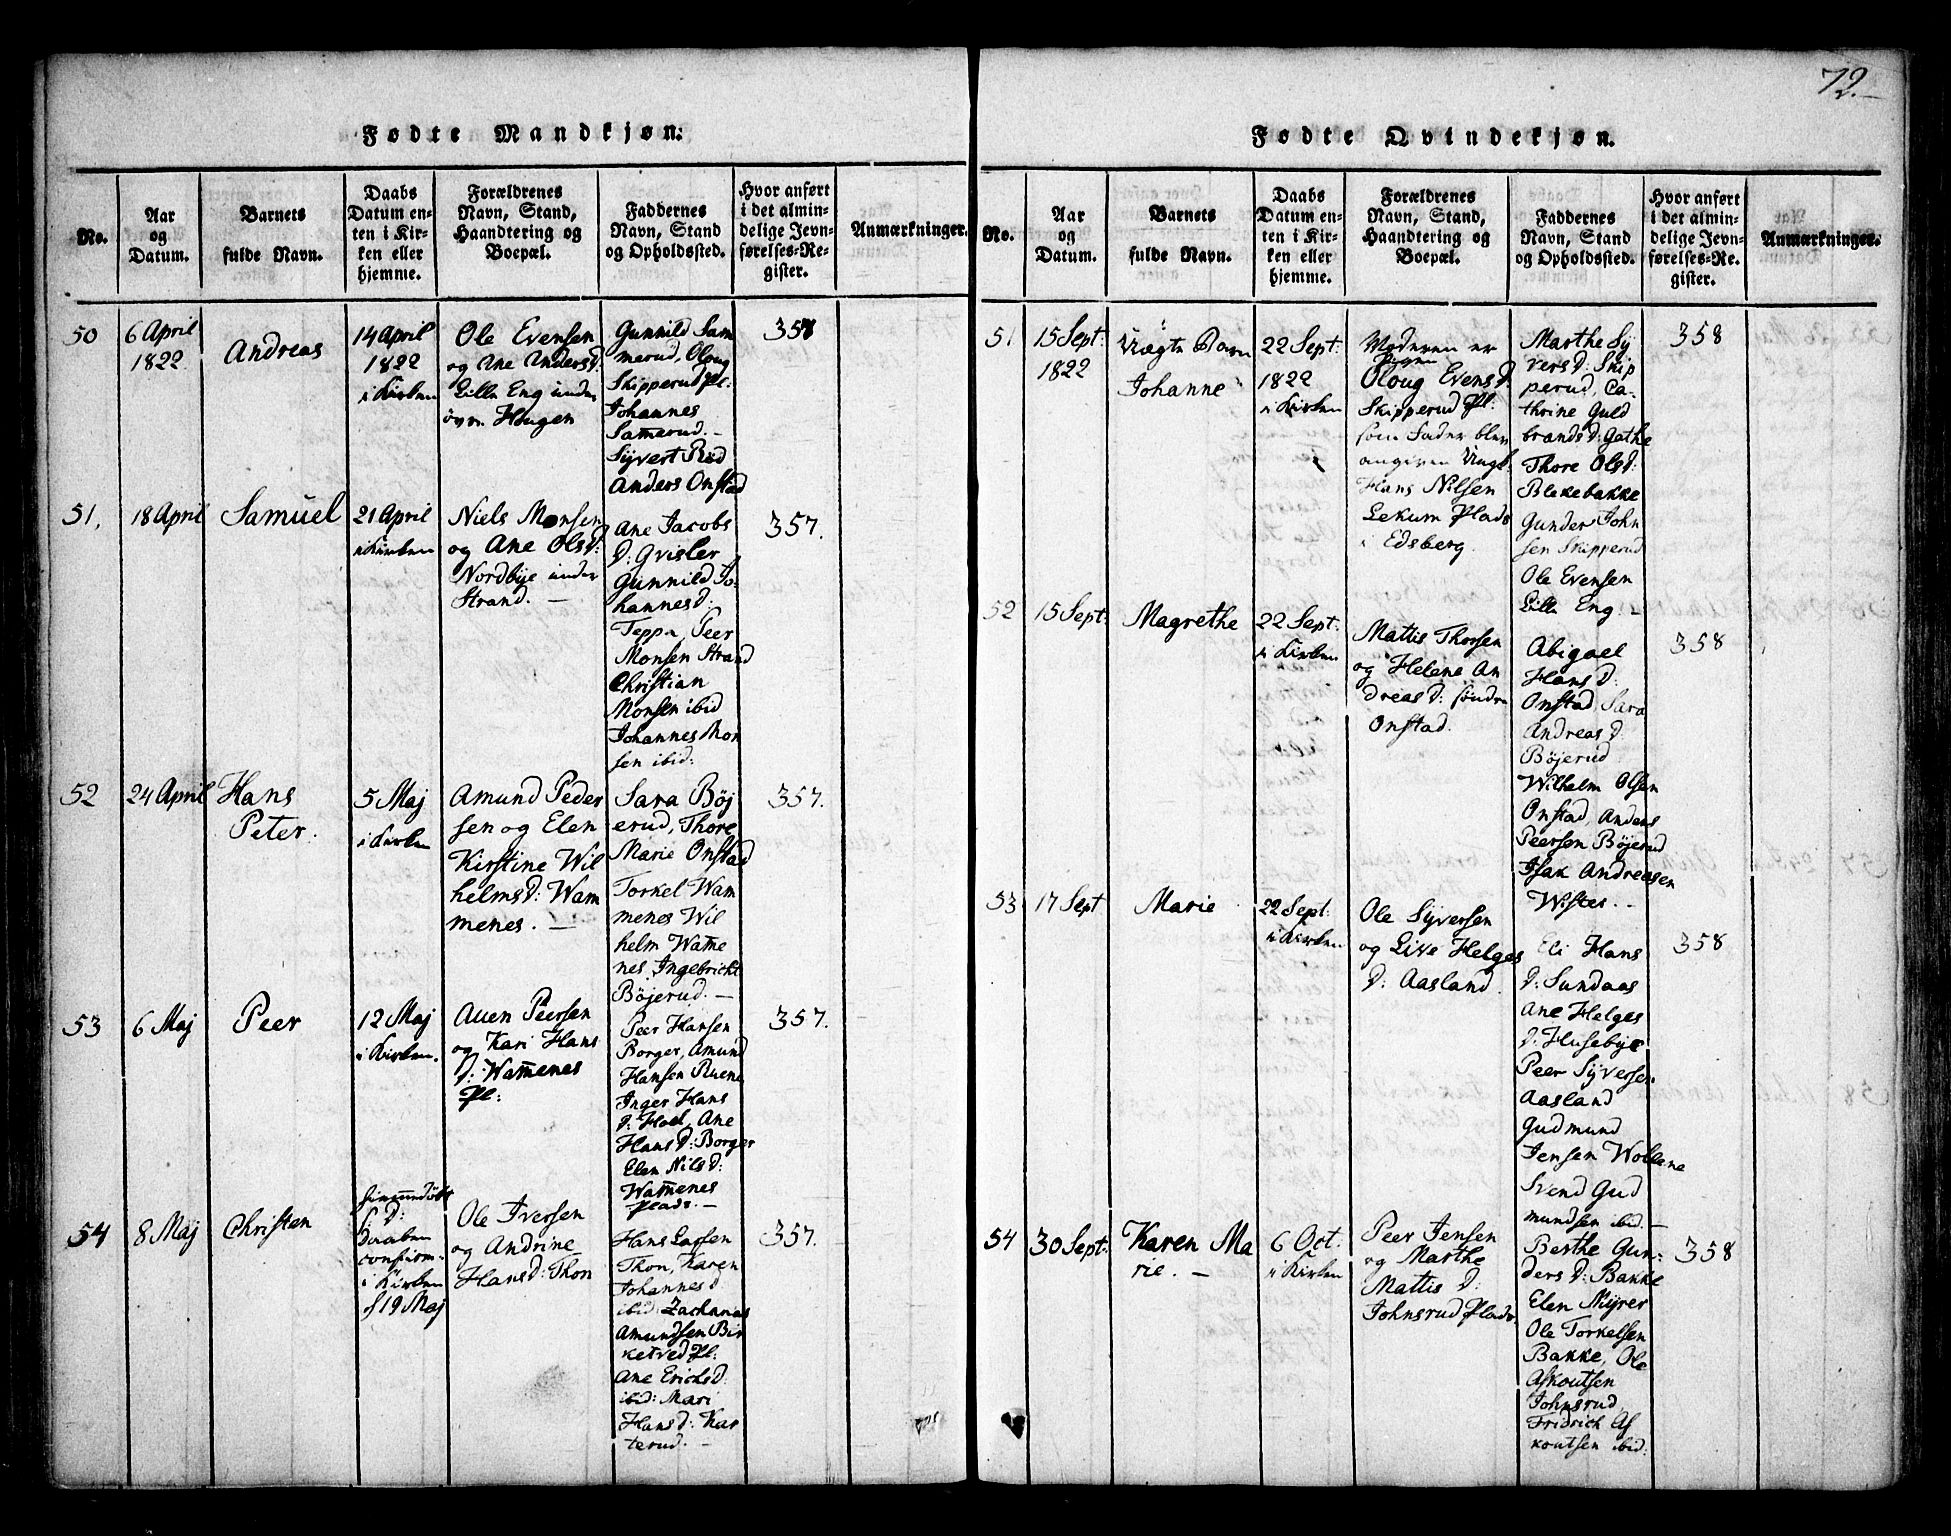 72.
Fødte Mandkjøn.
No.
Aar
og
Datum.
Barnets
fulde Navn.
Daabs
Datum en-
ten i Kir-
ken eller
hjemme.
Forældrenes
Navn, Stand,
Haandtering og
Boepæl.
Faddernes
Navn, Stand
og Opholdssted.
Hvor anført
i det almin-
delige Jevn-
førelses-Re-
gister.
Anmærkninger.
50
6 April
1822
Andreas
14 April
1822
i Kirken
Ole Evensen
og Ane Andersd:
Lille Eng under
Haugen
Gunnild Sam
merud, Oloug
Skipperud Pl:
Johannes
Samerud. -
Syvert Rød
Anders Onstad
357
51.
18 April
Samuel
21 April
i Kirken
Niels Monsen
og Ane Olsd:
Nordbye under
Strand. -
Ane Jacobs
d: Grisler
Gunnild Jo
hannesd.
Teppa, Peer
Monsen Strand
Christian
Monsen ibid
Johannes Mon
sen ibid:
357.
52
24 April
Hans
Peter.
5 Maj
i Kirken
Amund Peder
sen og Elen
Kirstine Wil
helmsd: Wam
menes. -
Sara Bøj
erud, Thore
Marie Onstad
Torkel Wam
menes Wil
helm Wame
nes Ingebricht
Bøjerud. -
357.
53
6 Maj
Peer
12 Maj
i Kirken.
Aven Peersen
og Kari Hans
d: Wamenes
Pl:
Peer Hansen
Borger, Amund
Hansen Ruene
Inger Hans
d: Hoel, Ane
Hansd: Borger
Elen Nilsd:
Wamenes
Plads. -
357.
54
8 Maj
Christen
Daaben
confirm.
i Kirken
d 19 Maj
Ole Iversen
og Andrine
Hansd: Thon
Hans Larsen
Thon, Karen
Johannesd
ibid: Zacharias
Amundsen Bir
ketved Pl:
Ane Ericksd:
ibid: Mari
Hansd: Kas
terud. -
357.
Fødte Qvindekjøn.
No.
Aar
og
Datum.
Barnets
fulde Navn.
Daabs
Datum en-
ten i Kir-
ken eller
hjemme.
Forældrenes
Navn, Stand,
Haandtering og
Boepæl.
Faddernes
Navn, Stand
og Opholdssted.
Hvor anført
i det almin-
delige Jevn-
førelses-Re-
gister.
Anmærkninger.
51
15 Sept:
1822
Uægte Barn
Johanne
22 Sept:
1822
i Kirken
Moderen er
Pigen
Oloug Evensd:
Skipperud Pl:
som Fader blev
angiven Ungk.
Hans Nilsen
Lekum Plads
i Edsberg.
Marthe Sy
versd: Skip
perud, Ca-
thrine Guld
brandsd: Gathe
Thore Olsd:
Blekebakke
Gunder John
sen Skipperud
Ole Evensen
Lille Eng -
358
52
15 Sept:
Magrethe
22 Sept:
i Kirken
Mattis Thorsen
og Helene An
dreasd: søndre
Onstad.
Abigael
Hansd:
Onstad, Sara
Andreasd:
Bøjerud
Wilhelm Olsen
Onstad, Anders
Peersen Bøjerud
Isak Andreasen
Wister. -
358
53
17 Sept
Marie
22 Sept:
i Kirken
Ole Syversen
og Live Helges
d: Aasland
Eli Hans
d: Sundaas
Ane Helges
d: Husebye
Peer Syversen
Aasland
Gudmund
Jensen Wollene
Svend Gud
mundsen ibid. -
358
54
30 Sept:
Karen Ma
rie. -
6 Oct.
i Kirken
Peer Jensen
og Marthe
Mattis d:
Johnsrud Plads.
Berthe Gun-
dersd: Bakke
Elen Myrer
Ole Torkelsen
Bakke, Ole
Askoutsen
Johnsrud,
Fridrich As
koutsen ibid:
358